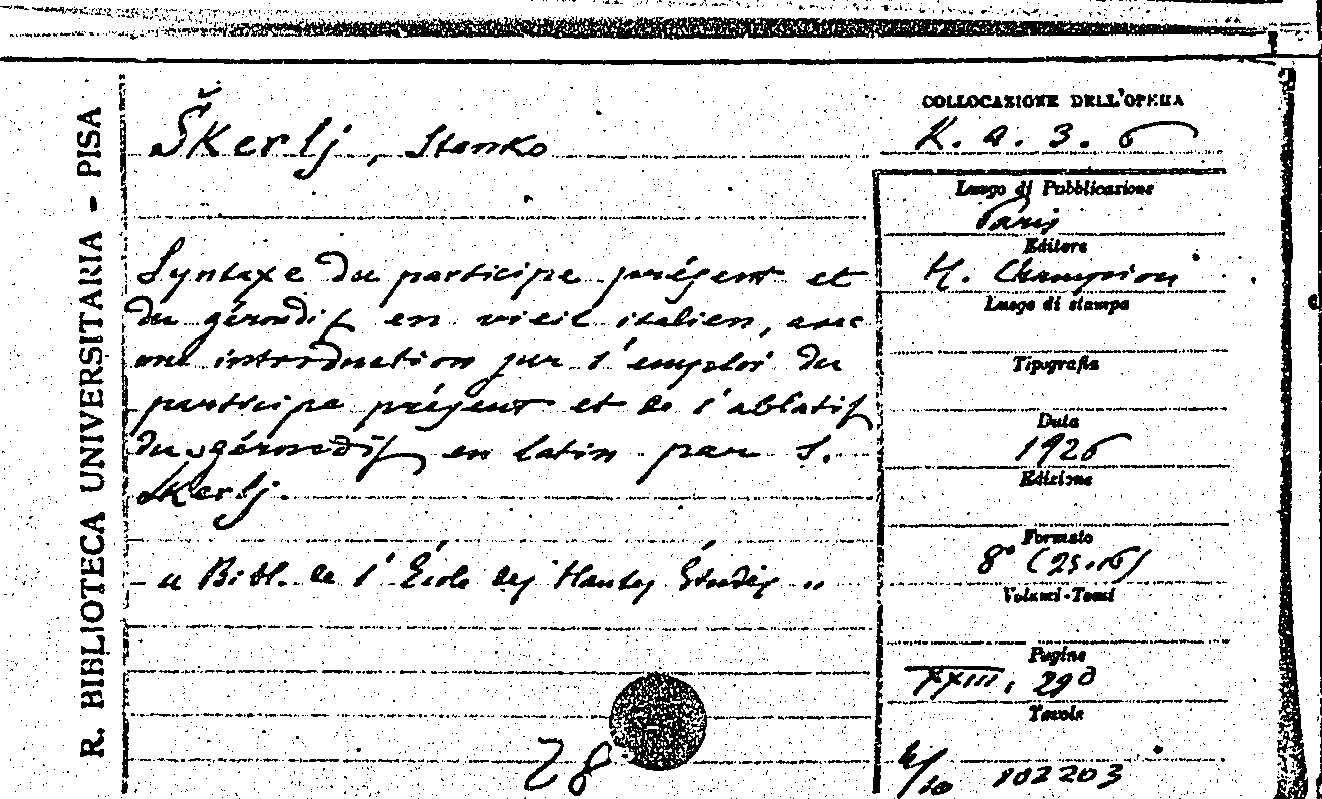 R. BIBLIOTECA UNIVERSITARIA - PISA
Škerlj, Stanko
Syntaxe du participe présent et
du gérondif en vieil italien, avec
une introduction sur l'emploi du
participe présent et de l'ablatif
du gérondif en latin par S.
Škerlj.
" Bibl. de l'École des Hautes Études "
28
COLLOCAZIONE DELL'OPERA
K. a. 3. 6
Luogo di Pubblicazione
Paris
Editore
H. Champion
Luogo di stampa
Tipografia
Data
1926
Edizione
Formato
8° (25.16)
Volumi-Tomi
Pagine
XXIII, 290
Tavole
102203